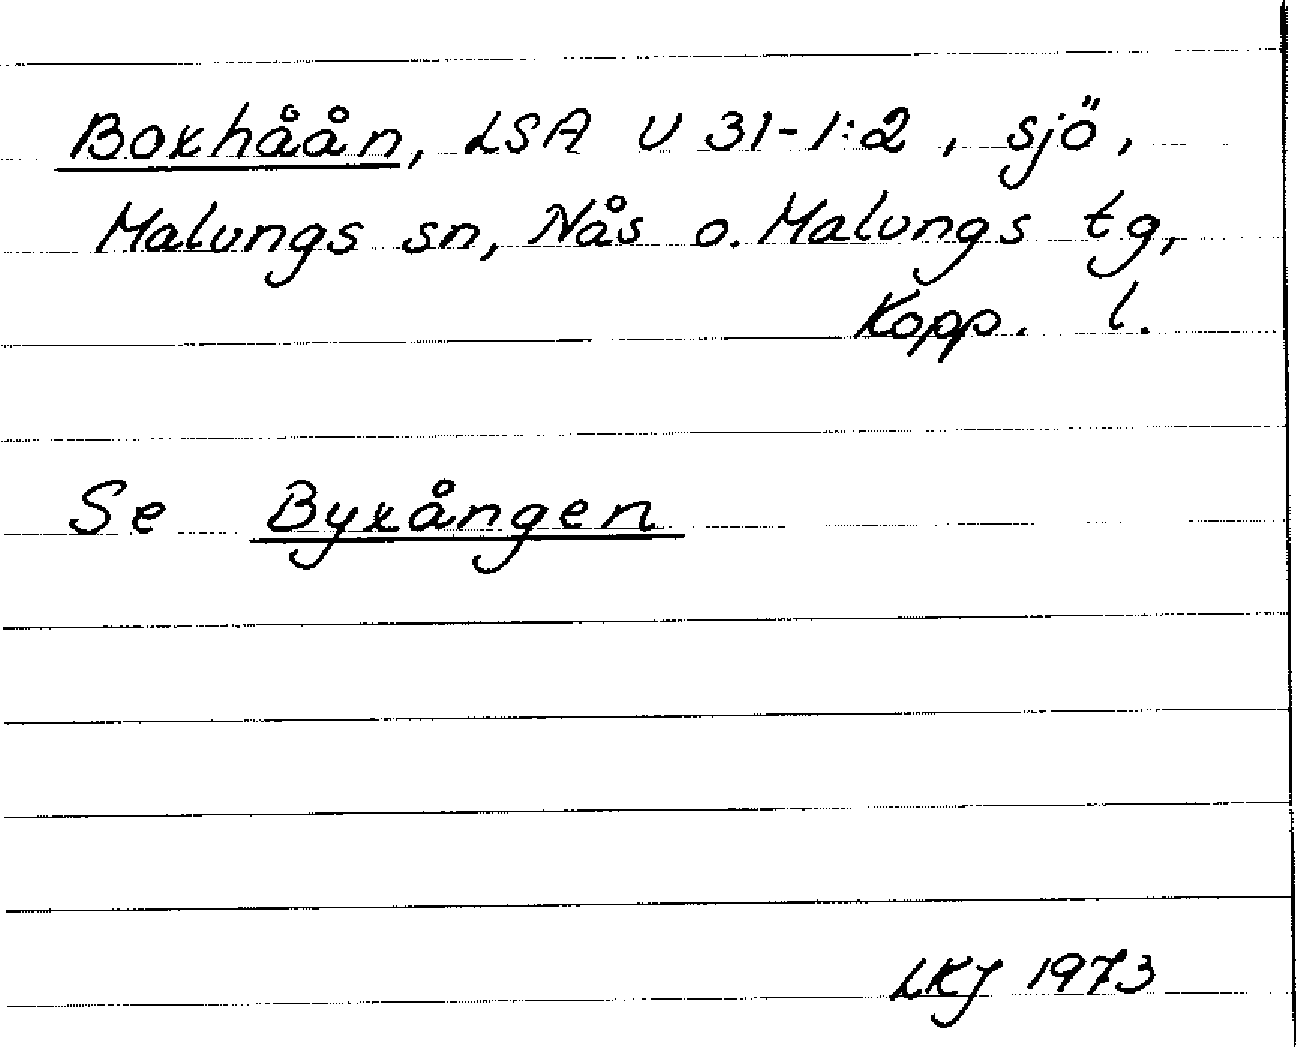 Boxhåån, LSA U 31-1:2, sjö,
Malungs sn, Nås o. Malungs tg,
Kopp. l.
Se Byxången
LKJ 1973